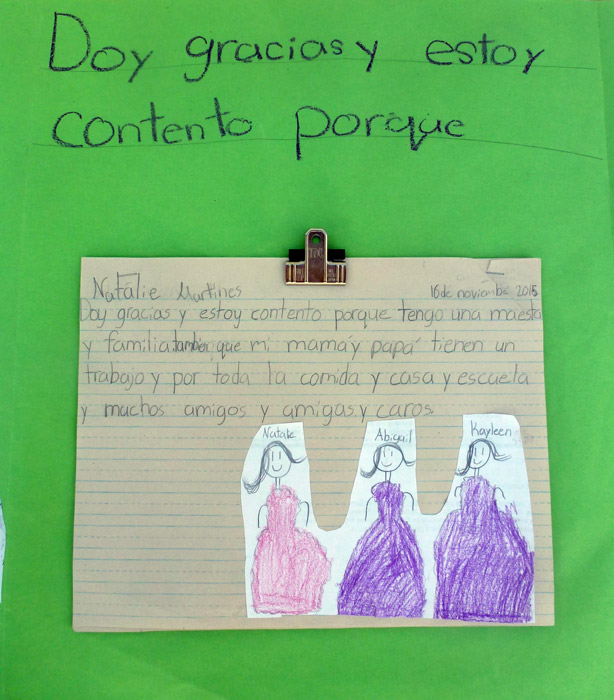 Doy gracias y estoy
contento porque
Natalie Martines 16 de noviembe 2015
Doy gracias y estoy contento porque tengo una maesta
y familia también que mi mamá y papá tienen un
trabajo y por toda la comida y casa y escuela
y muchos amigos y amigas y caros.
Natalie Abigail Kayleen